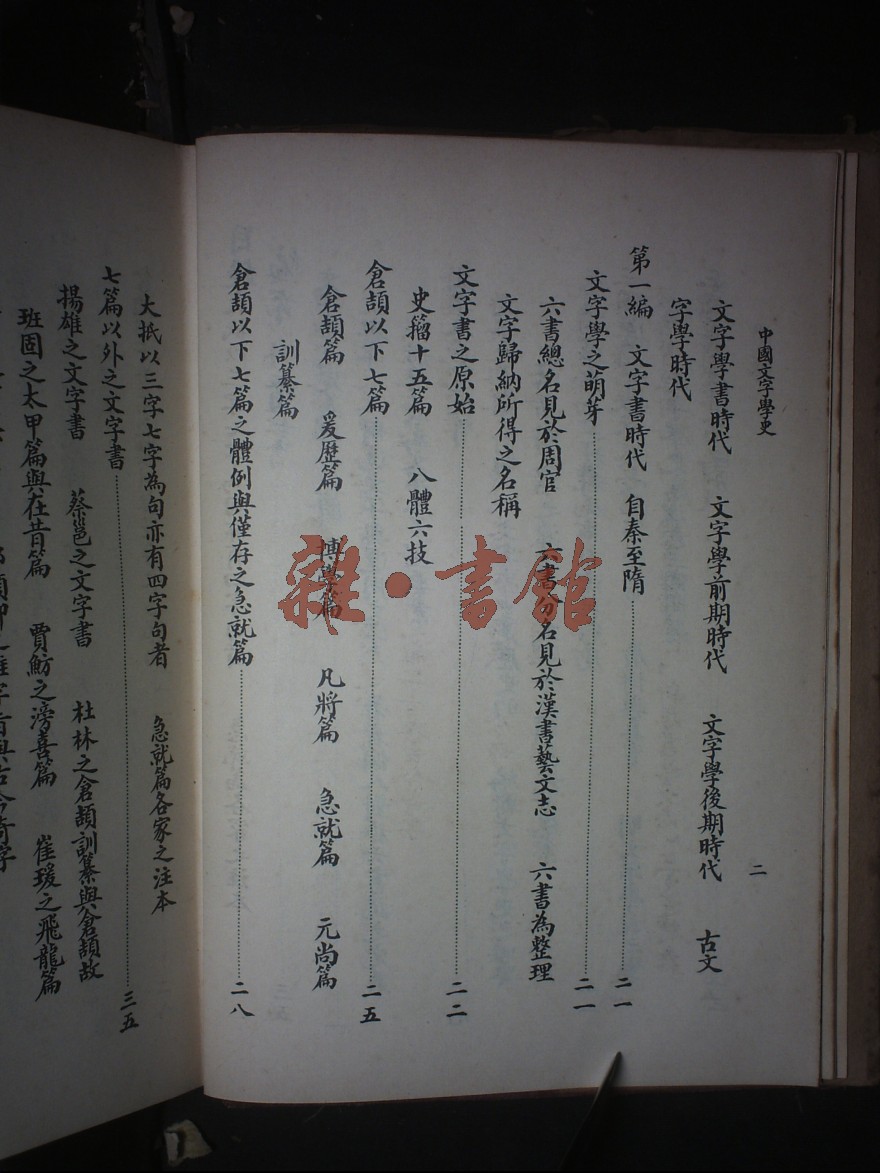 中國文字學史
二
文字學書時代　文字學前期時代　文字學後期時代　古文
字學時代
第一編　文字書時代　自秦至隋……二一
文字學之萌芽……二一
六書總名見於周官　六書分名見於漢書藝文志　六書為整理
文字歸納所得之名稱
文字書之原始……二二
史籀十五篇　八體六技
倉頡以下七篇……二五
倉頡篇　爰歷篇　博學篇　凡將篇　急就篇　元尚篇
訓纂篇
倉頡以下七篇之體例與僅存之急就篇……二八
大抵以三字七字為句亦有四字句者　急就篇各家之注本
七篇以外之文字書……三五
揚雄之文字書　蔡邕之文字書　杜林之倉頡訓纂與倉頡故
班固之太甲篇與在昔篇　賈魴之滂喜篇　崔瑗之飛龍篇
雜·書館